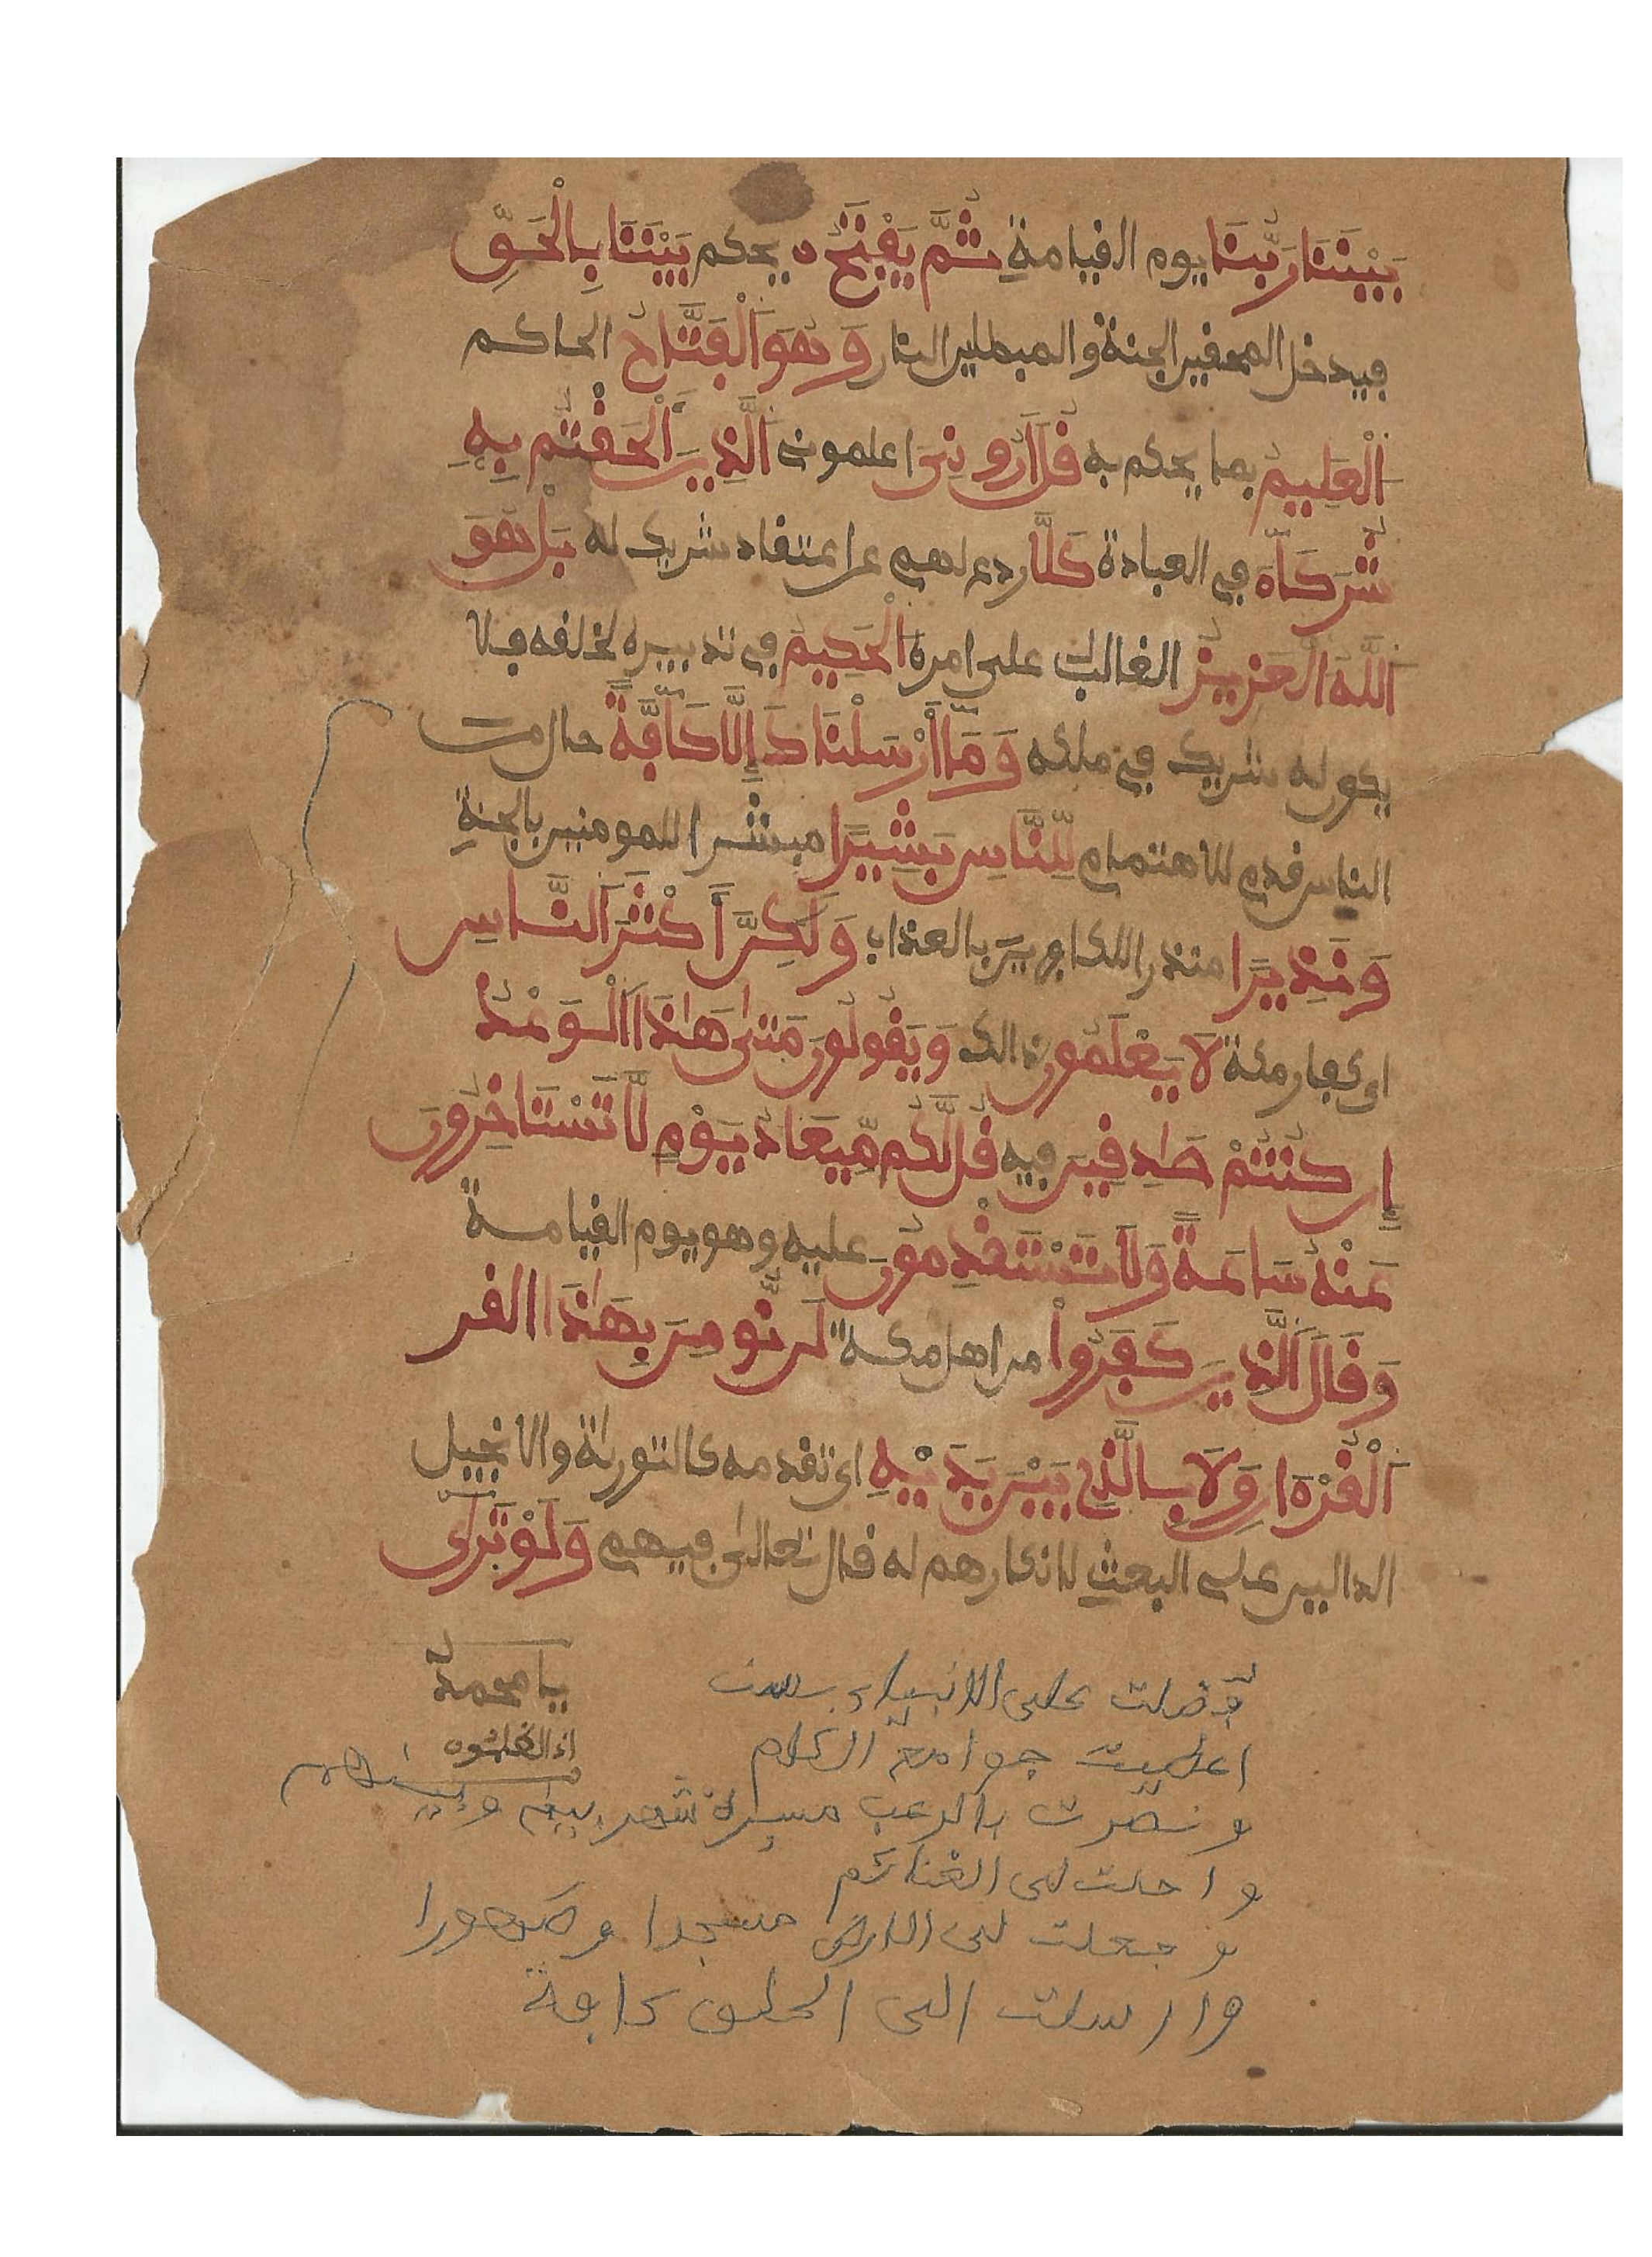 بَيْنَنَا رَبُّنَا يوم القيامة ثُمَّ يَفْتَحُ يحكم بَيْنَنَا بِالْحَقِّ
فيدخل المحقين الجنة والمبطلين النار وَهُوَ اَلْفَتَّاحُ الحاكم
اَلْعَلِيمُ بما يحكم به قُلَ اَرُونِيَ اعلموني اَلَّذِينَ أَلْحَقْتُم بِهِ
شُرَكَآءَ في العبادة كَلَّا ردع لهم عن اعتقاد شريك له بَلْ هُوَ
اَللَّهُ اَلْعَزِيزُ الغالب على امره اَلْحَكِيمُ في تدبيره لخلقه فلا
يكون له شريك في ملكه وَمَآ أَرْسَلْنَاكَ إِلَّا كَآفَّةً حال من
الناس قدم للاهتمام لِّلنَّاسِ بَشِيرًا مبشرا للمومنين بالجنة
وَنَذِيرًا منذرا للكافرين بالعذاب وَلَكِنَّ أَكْثَرَ اَلنَّاسِ
اى كفار مكة لَا يَعْلَمُونَ ذالك وَيَقُولُونَ مَتَىٰ هَٰذَا اَلْوَعْدُ
إِن كُنتُمْ صَٰدِقِينَ فيه قُل لَّكُم مِّيعَادُ يَوْمٍ لَّا تَسْتَاخِرُونَ
عَنْهُ سَاعَةً وَلَا تَسْتَقْدِمُونَ عليه وهو يوم القيامة
وَقَالَ اَلَّذِينَ كَفَرُواْ من اهل مكة لَن نُّومِنَ بِهَٰذَا القر
اَلْقُرْءَانِ وَلَا بِالَّذِي بَيْنَ يَدَيْهِ اى تقدمه كالتورىة والانجيل
الدالين على البعث لانكارهم له قال تعالى فيهم وَلَوْ تَرَىٰٓ
يا محمد
اذ الظلمون
فضلت على الانبياء بست
اعطيت جوامع الكلام
و نصرت بالرعب مسيرة شهر بيني و بينهم
و احلت لى الغنائم
و جعلت لى الارض مسجدا و طهورا
و ارسلت الى الخلق كافة